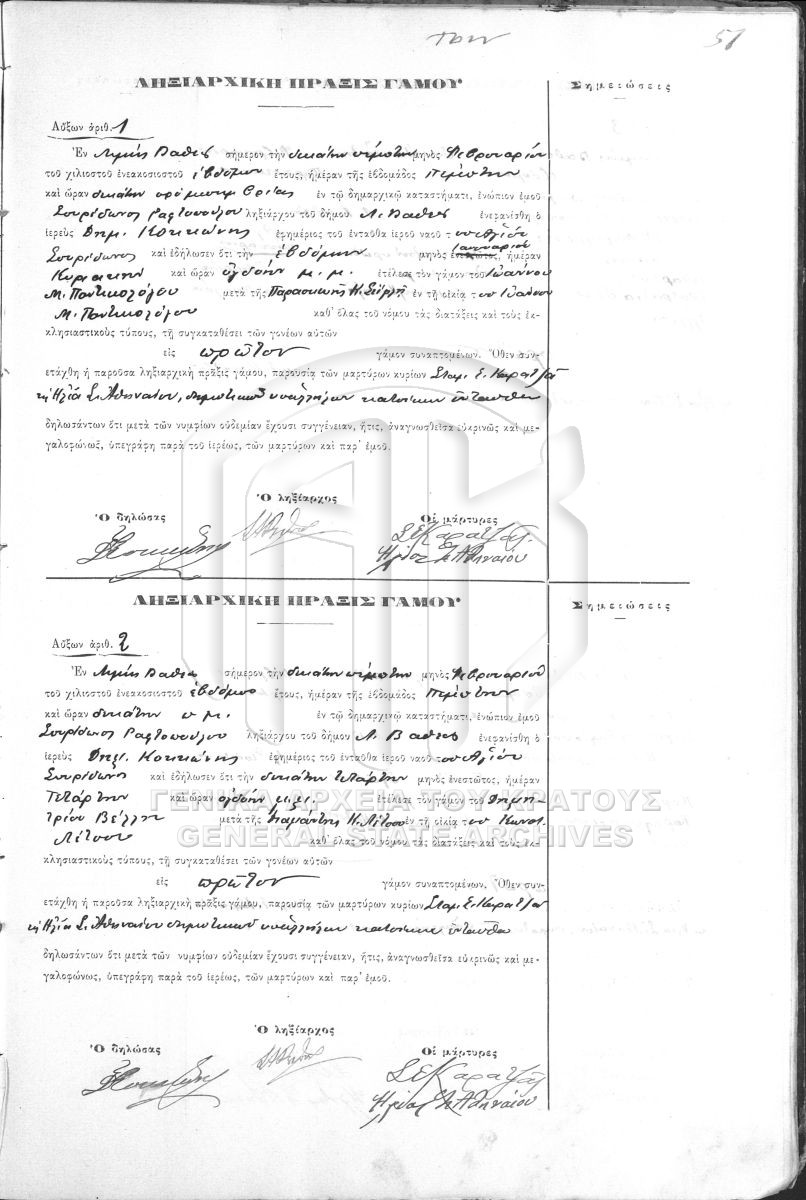 51
ΛΗΞΙΑΡΧΙΚΗ ΠΡΑΞΙΣ ΓΑΜΟΥ
Σημειώσεις
Αὔξων ἀριθ. 1
Ἐν Λιμὴν Βαθέος σήμερον τὴν δεκάτην πέμπτην μηνὸς Φεβρουαρίου
τοῦ χιλιοστοῦ ἐνεακοσιοστοῦ ἑβδόμου ἔτους, ἡμέραν τῆς ἑβδομάδος Πέμπτην
καὶ ὥραν δεκάτην πρὸ μεσημβρίας ἐν τῷ δημαρχικῷ καταστήματι, ἐνώπιον ἐμοῦ
Σπυρίδωνος Ραφτοπούλου ληξιάρχου τοῦ δήμου Λ. Βαθέος ἐνεφανίσθη ὁ
ἱερεὺς Δημ. Κοκκώνης ἐφημέριος τοῦ ἐνταῦθα ἱεροῦ ναοῦ τοῦ Ἁγίου
Σπυρίδωνος καὶ ἐδήλωσεν ὅτι τὴν ἑβδόμην μηνὸς ἐνεστῶτος, Ἰανουαρίου ἡμέραν
Κυριακὴν καὶ ὥραν ὀγδόην μ.μ. ἐτέλεσε τὸν γάμον τοῦ Ἰωάννου
Μ. μετὰ τῆς Παρασκευῆς Κ. ἐν τῇ οἰκίᾳ τοῦ Ἰωάννου
Μ. καθ' ὅλας τοῦ νόμου τὰς διατάξεις καὶ τοὺς ἐκ-
κλησιαστικοὺς τύπους, τῇ συγκαταθέσει τῶν γονέων αὐτῶν
εἰς πρῶτον γάμον συναπτομένων. Ὅθεν συν-
ετάχθη ἡ παροῦσα ληξιαρχικὴ πρᾶξις γάμου, παρουσίᾳ τῶν μαρτύρων κυρίων Σταμ. Ε. Καρατζᾶ
κ Ἠλία Σ. Ἀθηναίου, δημοτικῶν ὑπαλλήλων κατοίκων ἐνταῦθα
δηλωσάντων ὅτι μετὰ τῶν νυμφίων οὐδεμίαν ἔχουσι συγγένειαν, ἥτις, ἀναγνωσθεῖσα εὐκρινῶς καὶ με-
γαλοφώνως, ὑπεγράφη παρὰ τοῦ ἱερέως, τῶν μαρτύρων καὶ παρ' ἐμοῦ.
Ὁ ληξίαρχος
Ὁ δηλώσας
Οἱ μάρτυρες
Σ Ε Καρατζᾶς
Ἠλίας Σ. Ἀθηναίου
ΛΗΞΙΑΡΧΙΚΗ ΠΡΑΞΙΣ ΓΑΜΟΥ
Σημειώσεις
Αὔξων ἀριθ. 2
Ἐν Λιμὴν Βαθέος σήμερον τὴν δεκάτην πέμπτην μηνὸς Φεβρουαρίου
τοῦ χιλιοστοῦ ἐνεακοσιοστοῦ ἑβδόμου ἔτους, ἡμέραν τῆς ἑβδομάδος Πέμπτην
καὶ ὥραν δεκάτην π.μ. ἐν τῷ δημαρχικῷ καταστήματι, ἐνώπιον ἐμοῦ
Σπυρίδωνος Ραφτοπούλου ληξιάρχου τοῦ δήμου Λ. Βαθέος ἐνεφανίσθη ὁ
ἱερεὺς Δημ. Κοκκώνης ἐφημέριος τοῦ ἐνταῦθα ἱεροῦ ναοῦ τοῦ Ἁγίου
Σπυρίδωνος καὶ ἐδήλωσεν ὅτι τὴν δεκάτην τετάρτην μηνὸς ἐνεστῶτος, ἡμέραν
Τετάρτην καὶ ὥραν ὀγδόην μ.μ. ἐτέλεσε τὸν γάμον τοῦ Δημη-
τρίου Βέλλη μετὰ τῆς Διαμάντης Κ. Λέτσου ἐν τῇ οἰκίᾳ τοῦ Κωνσ.
Λέτσου καθ' ὅλας τοῦ νόμου τὰς διατάξεις καὶ τοὺς ἐκ-
κλησιαστικοὺς τύπους, τῇ συγκαταθέσει τῶν γονέων αὐτῶν
εἰς πρῶτον γάμον συναπτομένων. Ὅθεν συν-
ετάχθη ἡ παροῦσα ληξιαρχικὴ πρᾶξις γάμου, παρουσίᾳ τῶν μαρτύρων κυρίων Σταμ. Ε. Καρατζᾶ
κ Ἠλία Σ. Ἀθηναίου δημοτικῶν ὑπαλλήλων κατοίκων ἐνταῦθα
δηλωσάντων ὅτι μετὰ τῶν νυμφίων οὐδεμίαν ἔχουσι συγγένειαν, ἥτις, ἀναγνωσθεῖσα εὐκρινῶς καὶ με-
γαλοφώνως, ὑπεγράφη παρὰ τοῦ ἱερέως, τῶν μαρτύρων καὶ παρ' ἐμοῦ.
Ὁ ληξίαρχος
Ὁ δηλώσας
Οἱ μάρτυρες
Σ Ε Καρατζᾶς
Ἠλίας Σ. Ἀθηναίου
ΓΕΝΙΚΑ ΑΡΧΕΙΑ ΤΟΥ ΚΡΑΤΟΥΣ
GENERAL STATE ARCHIVES